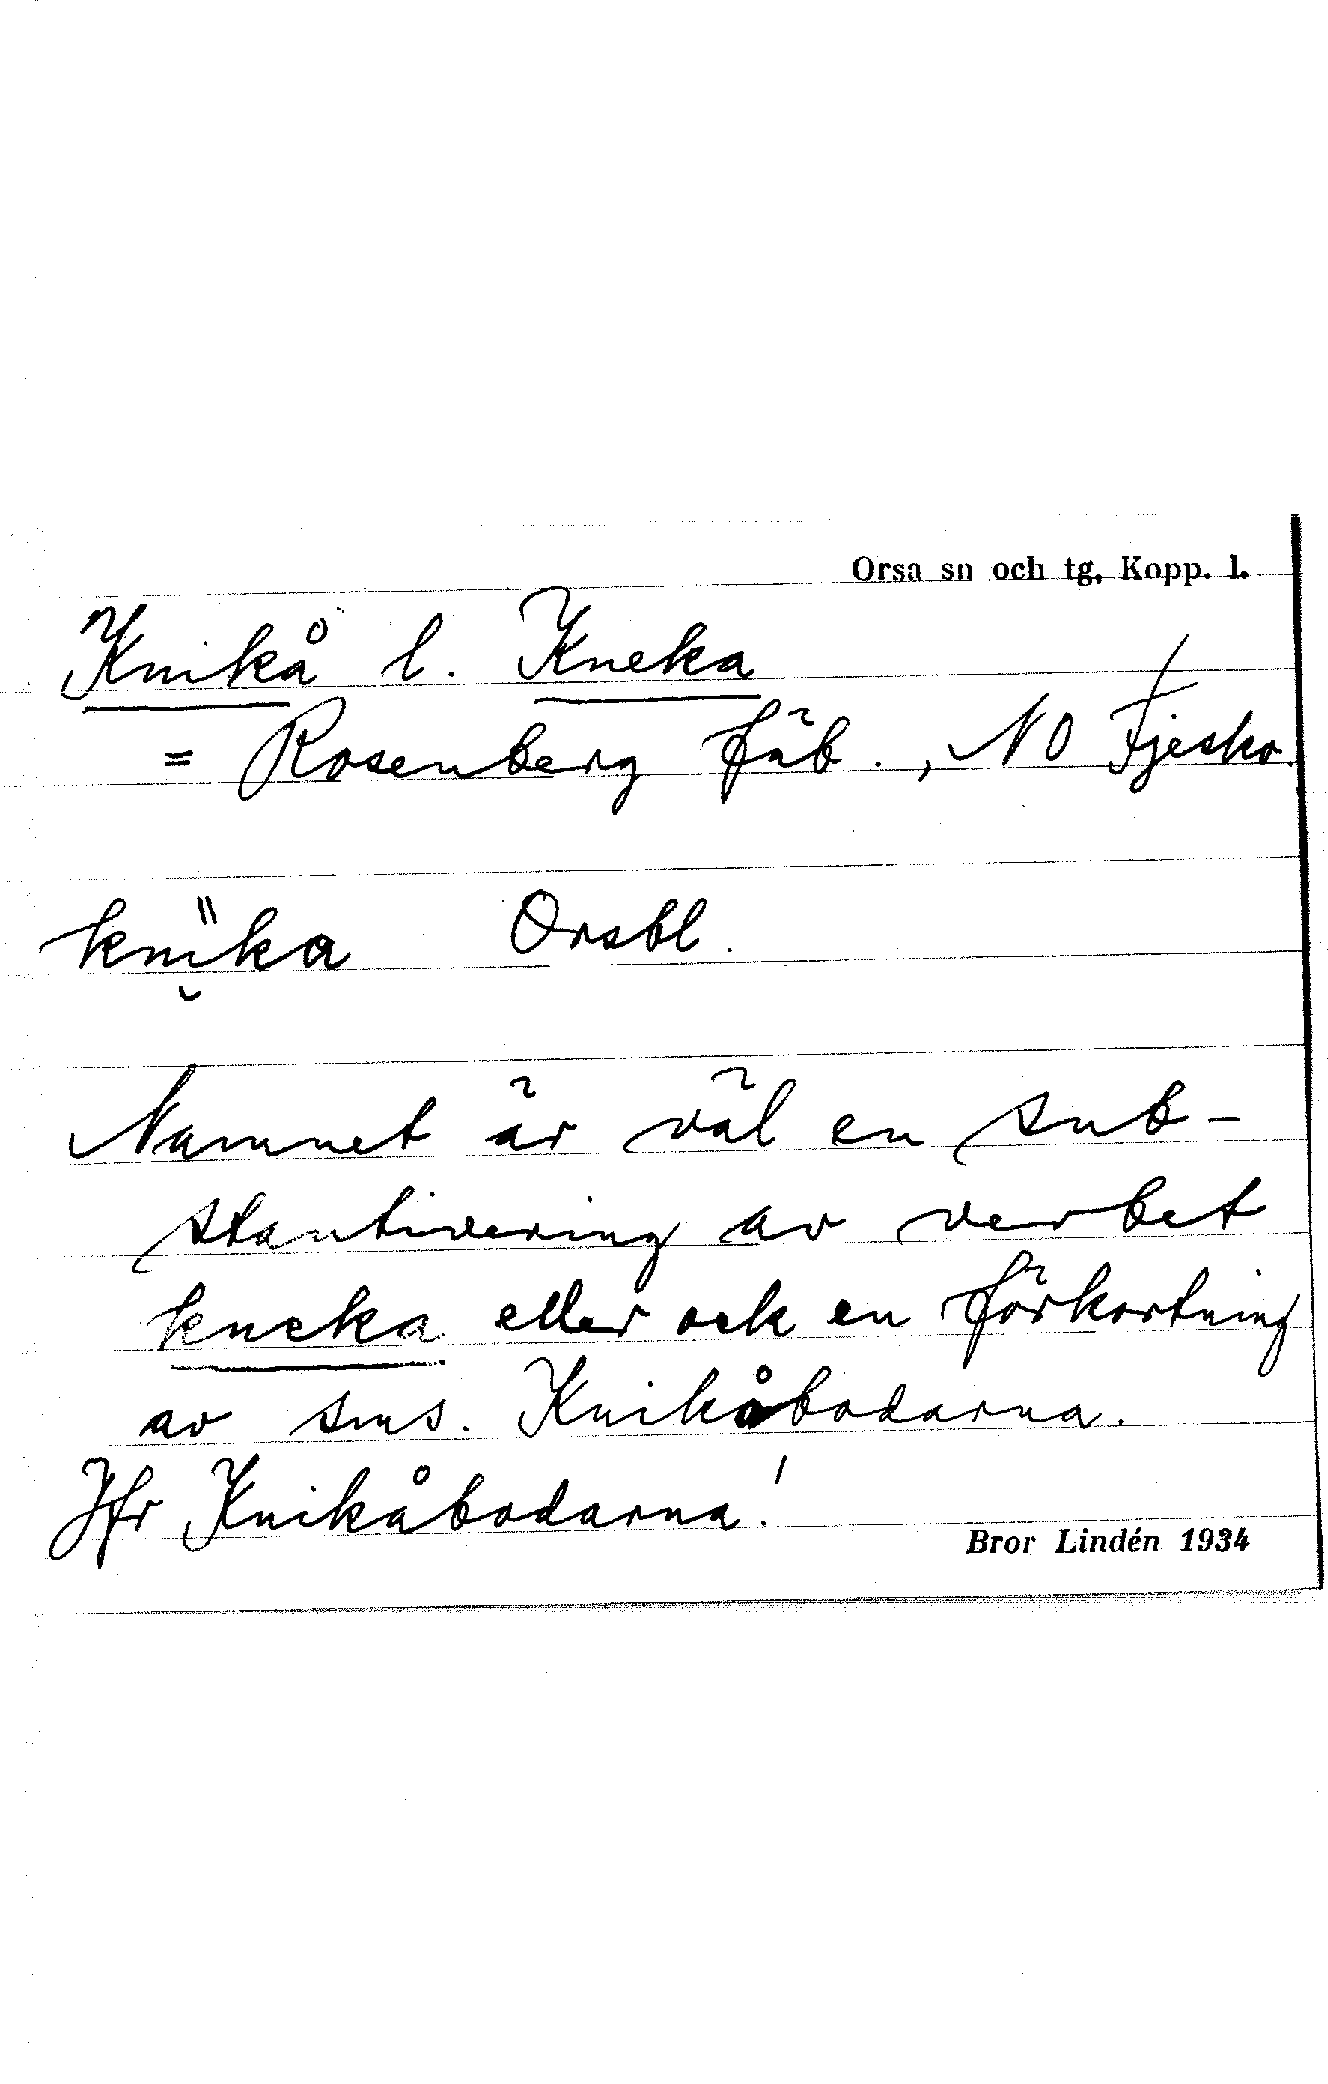 Orsa sn och tg, Kopp. l.
Knikå l. Kneka
= Rosenberg fäb., NO Fjesko.
knika Orsbl.
Namnet är väl en sub-
stantivering av verbet
kneka eller ock en förkortning
av sms. Knikåbodarna.
Jfr Knikåbodarna!
Bror Lindén 1934